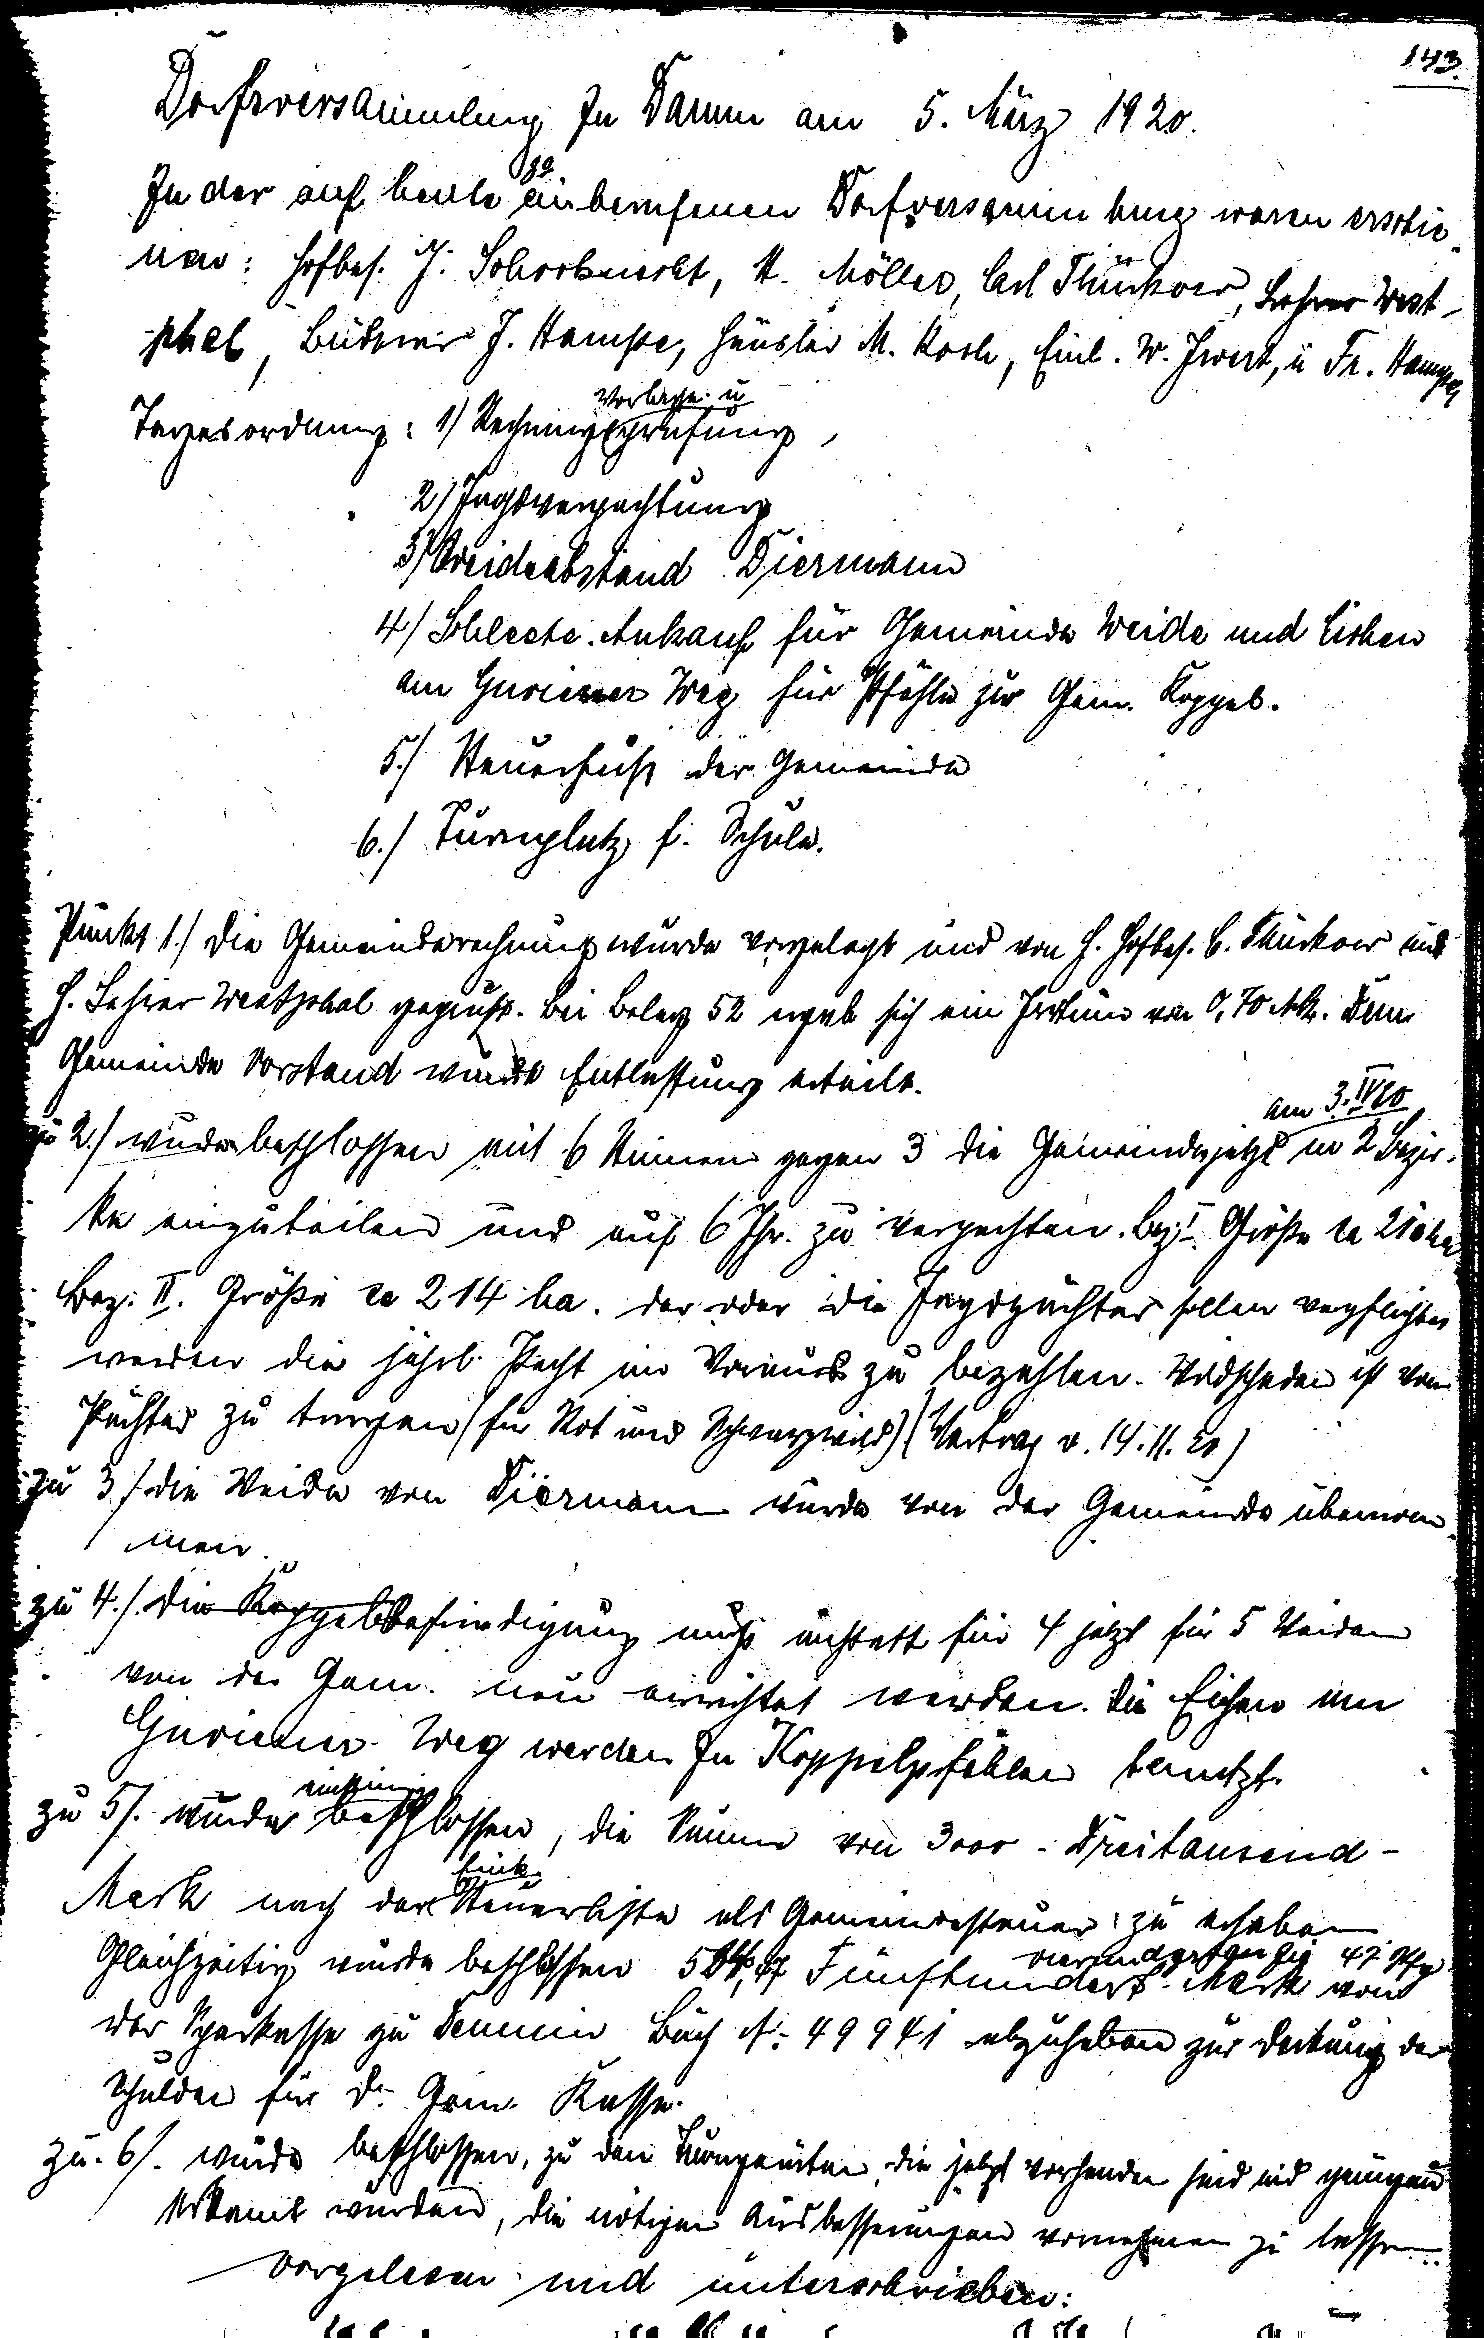 143.
Dorfsversammlung zu Damm am 5. März 1920.
In der auf heute einberufenen Dorfversammlung waren erschie-
nen: Hofbes. J. Schoknecht, H. Möller, Carl Thürkow, Lehrer West-
phal, Büdner J. Hampe, Häusler M. Koch, Einl. W. Iwert, u Fr. Hampe
Vorlage u
Tagesordnung: 1) Rechnungsprüfung,
2) Jagdverpachtung
3) Weideabstand Diermann
4) Schleete Ankauf für Gemeinde Weide und Eichen
am Gnoiener Weg für Pfähle zur Gem. Koppel.
5.) Steuerfuß der Gemeinde
6.) Turnplatz f. Schule.
Punkt 1.) Die Gemeinderechnung wurde vorgelegt und von H. Hofbes. C. Thürkow und
H. Lehrer Westphal geprüft. Bei Beleg 52 ergab sich ein Irrtum von 0,70 Mk. Dem
Gemeinde Vorstand wurde Entlastung erteilt.
am 3.IV20
zu 2.) wurde beschlossen mit 6 Stimmen gegen 3 die Gemeindejagd in 2 Bezir-
ke einzuteilen und auf 6 Jhr. zu verpachten. Bez. I. Größe ca 210 ha
Bez. II. Größe ca 214 ha. Der oder die Jagdpächter sollen verpflichtet
werden die jährl. Pacht im Voraus zu bezahlen. Wildschaden ist vom
Pächter zu tragen (für Rot und Schwarzwild) (Vertrag v. 14.11.20)
zu 3.) die Weide von Diermann wurde von der Gemeinde übernom-
men.
zu 4.) Die Koppelbefriedigung muß anstatt für 4 jetzt für 5 Weiden
von der Gem. neu errichtet werden. Die Eichen am
Gnoiener Weg werden zu Koppelpfählen benutzt.
einstimmig
zu 5). wurde beschlossen, die Summe von 3000 - Dreitausend -
Eink.
Mark nach der Steuerliste als Gemeindesteuer zu erheben
vierundzwanzig 47 Pfg
Gleichzeitig wurde beschlossen 524,47 Fünfhundert Mark von
der Sparkasse zu Demmin Buch N: 49941 abzuheben zur Deckung der
Schulden für d. Gem. Kasse.
zu. 6). wurde beschlossen, zu den Turngeräten, die jetzt vorhanden sind und genügend
erkannt wurden, die nötigen Ausbesserungen vornehmen zu lassen.
vorgelesen und unterschrieben: